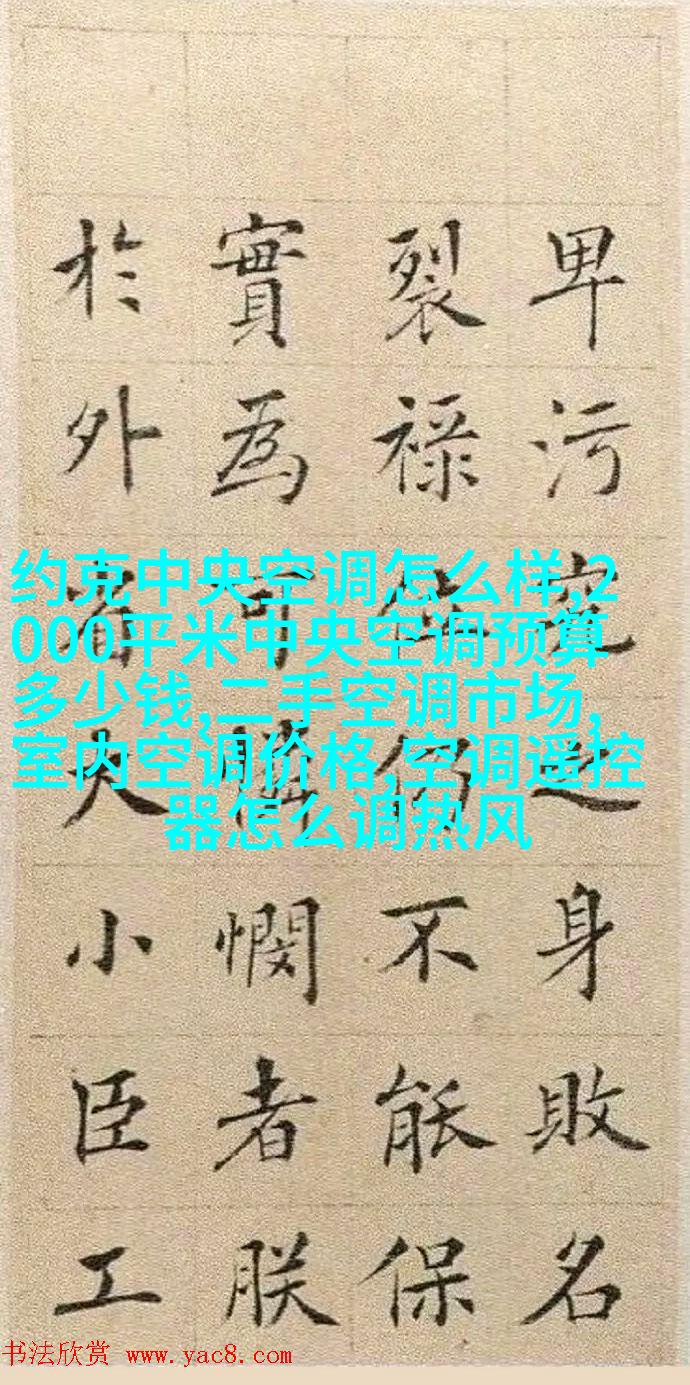 卑污究之身敗名
裂祿位仍不能保
實為可憐憫者朕
於外省大小臣工
约克中央空调怎么样,2
000平米中央空调预算
多少钱,二手空调市场,
室内空调价格,空调遥控
器怎么调热风
书法欣赏 www.yac8.com